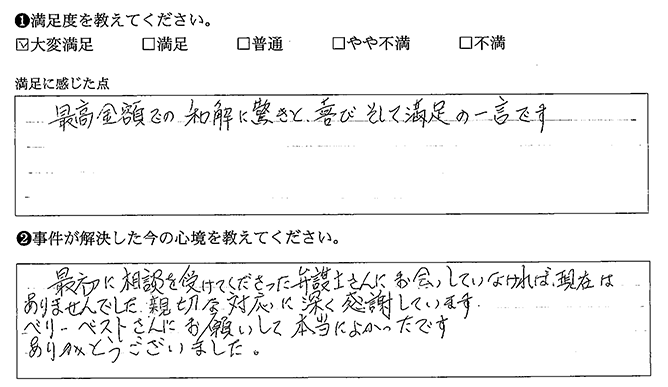 ❶満足度を教えてください。
☑大変満足 □満足 □普通 □やや不満 □不満
満足に感じた点
最高金額での和解に驚きと、喜びそして満足の一言です
❷事件が解決した今の心境を教えてください。
最初に相談を受けてくださった弁護士さんにお会いしていなければ、現在は
ありませんでした。親切な対応に深く感謝しています。
ベリーベストさんにお願いして本当によかったです
ありがとうございました。